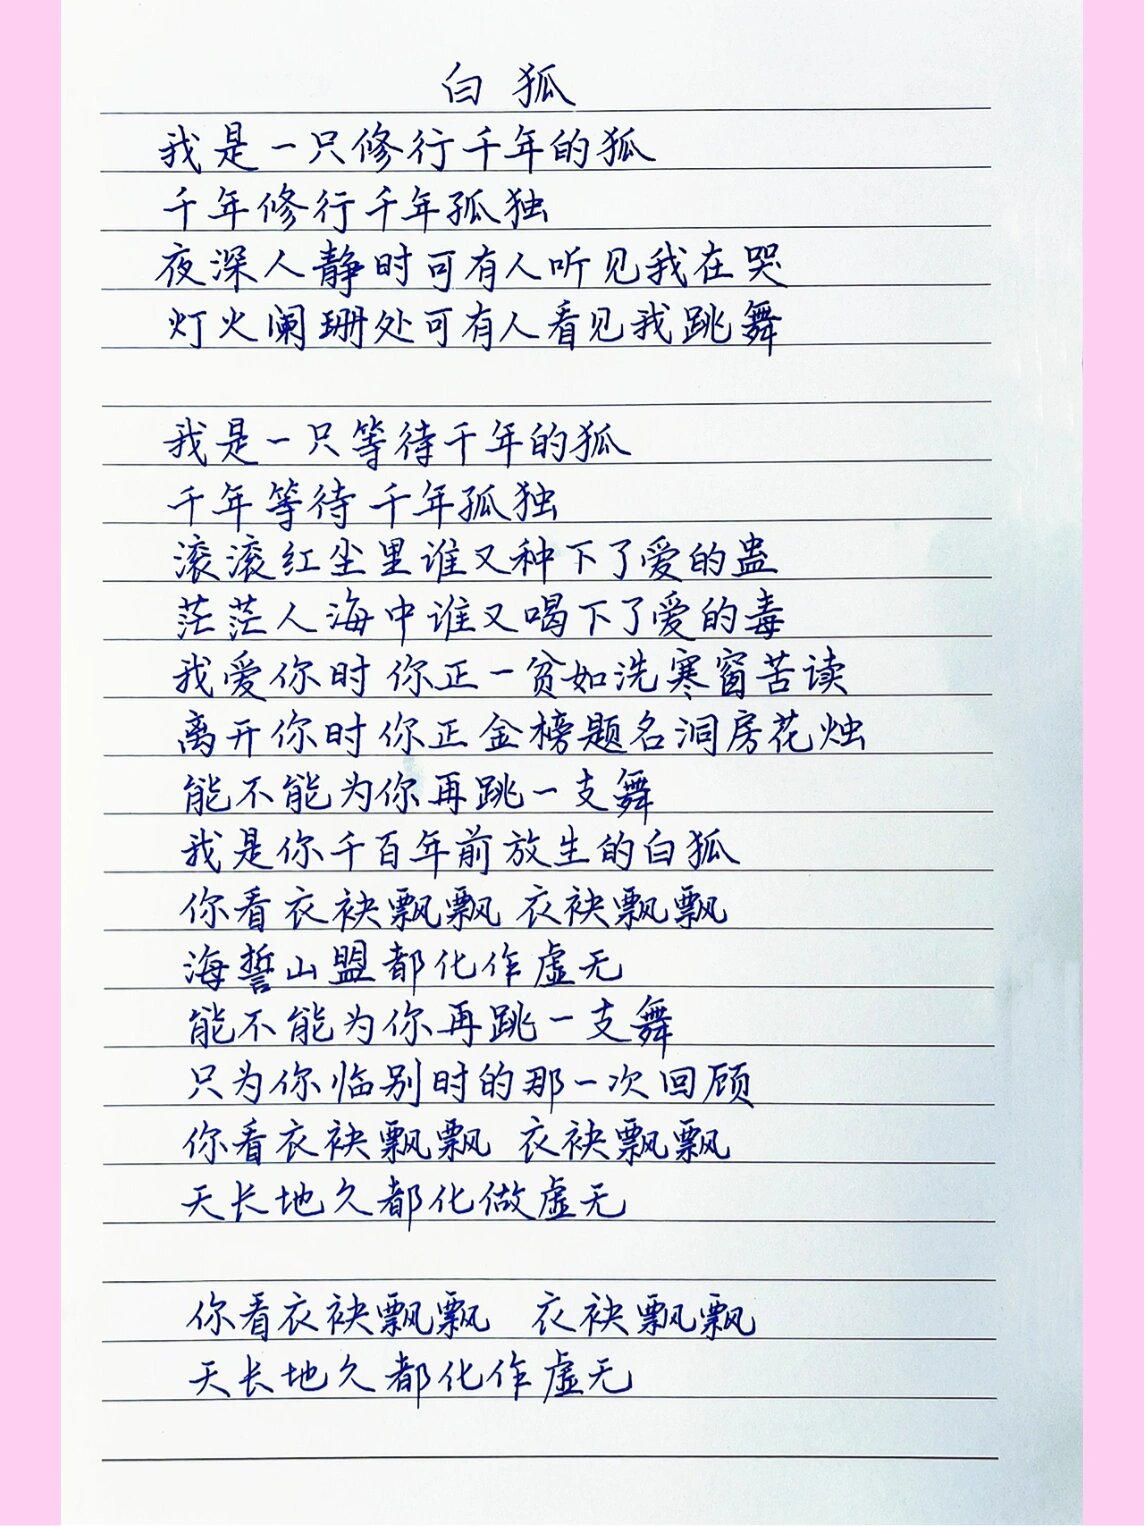 白狐
我是一只修行千年的狐
千年修行千年孤独
夜深人静时可有人听见我在哭
灯火阑珊处可有人看见我跳舞
我是一只等待千年的狐
千年等待千年孤独
滚滚红尘里谁又种下了爱的蛊
茫茫人海中谁又喝下了爱的毒
我爱你时你正一贫如洗寒窗苦读
离开你时你正金榜题名洞房花烛
能不能为你再跳一支舞
我是你千百年前放生的白狐
你看衣袂飘飘 衣袂飘飘
海誓山盟都化作虚无
能不能为你再跳一支舞
只为你临别时的那一次回顾
你看衣袂飘飘 衣袂飘飘
天长地久都化做虚无
你看衣袂飘飘 衣袂飘飘
天长地久都化作虚无